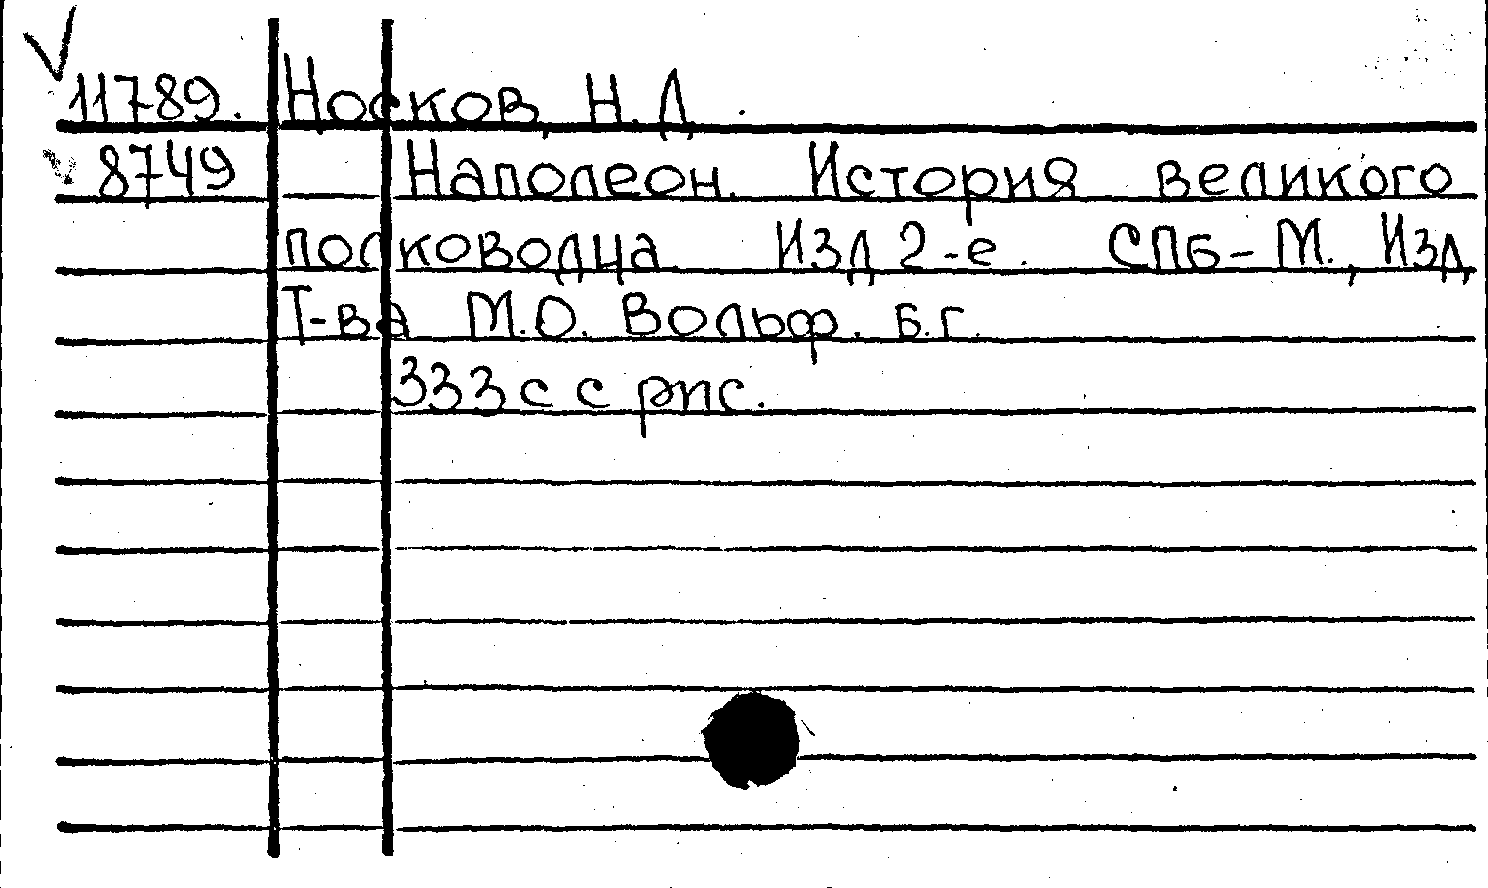 11789. Носков, Н.Д.
8749 Наполеон. История великого
полководца Изд 2-е. СПб-М., Изд
Т-ва М.О. Вольф. б.г.
333 с с рис.